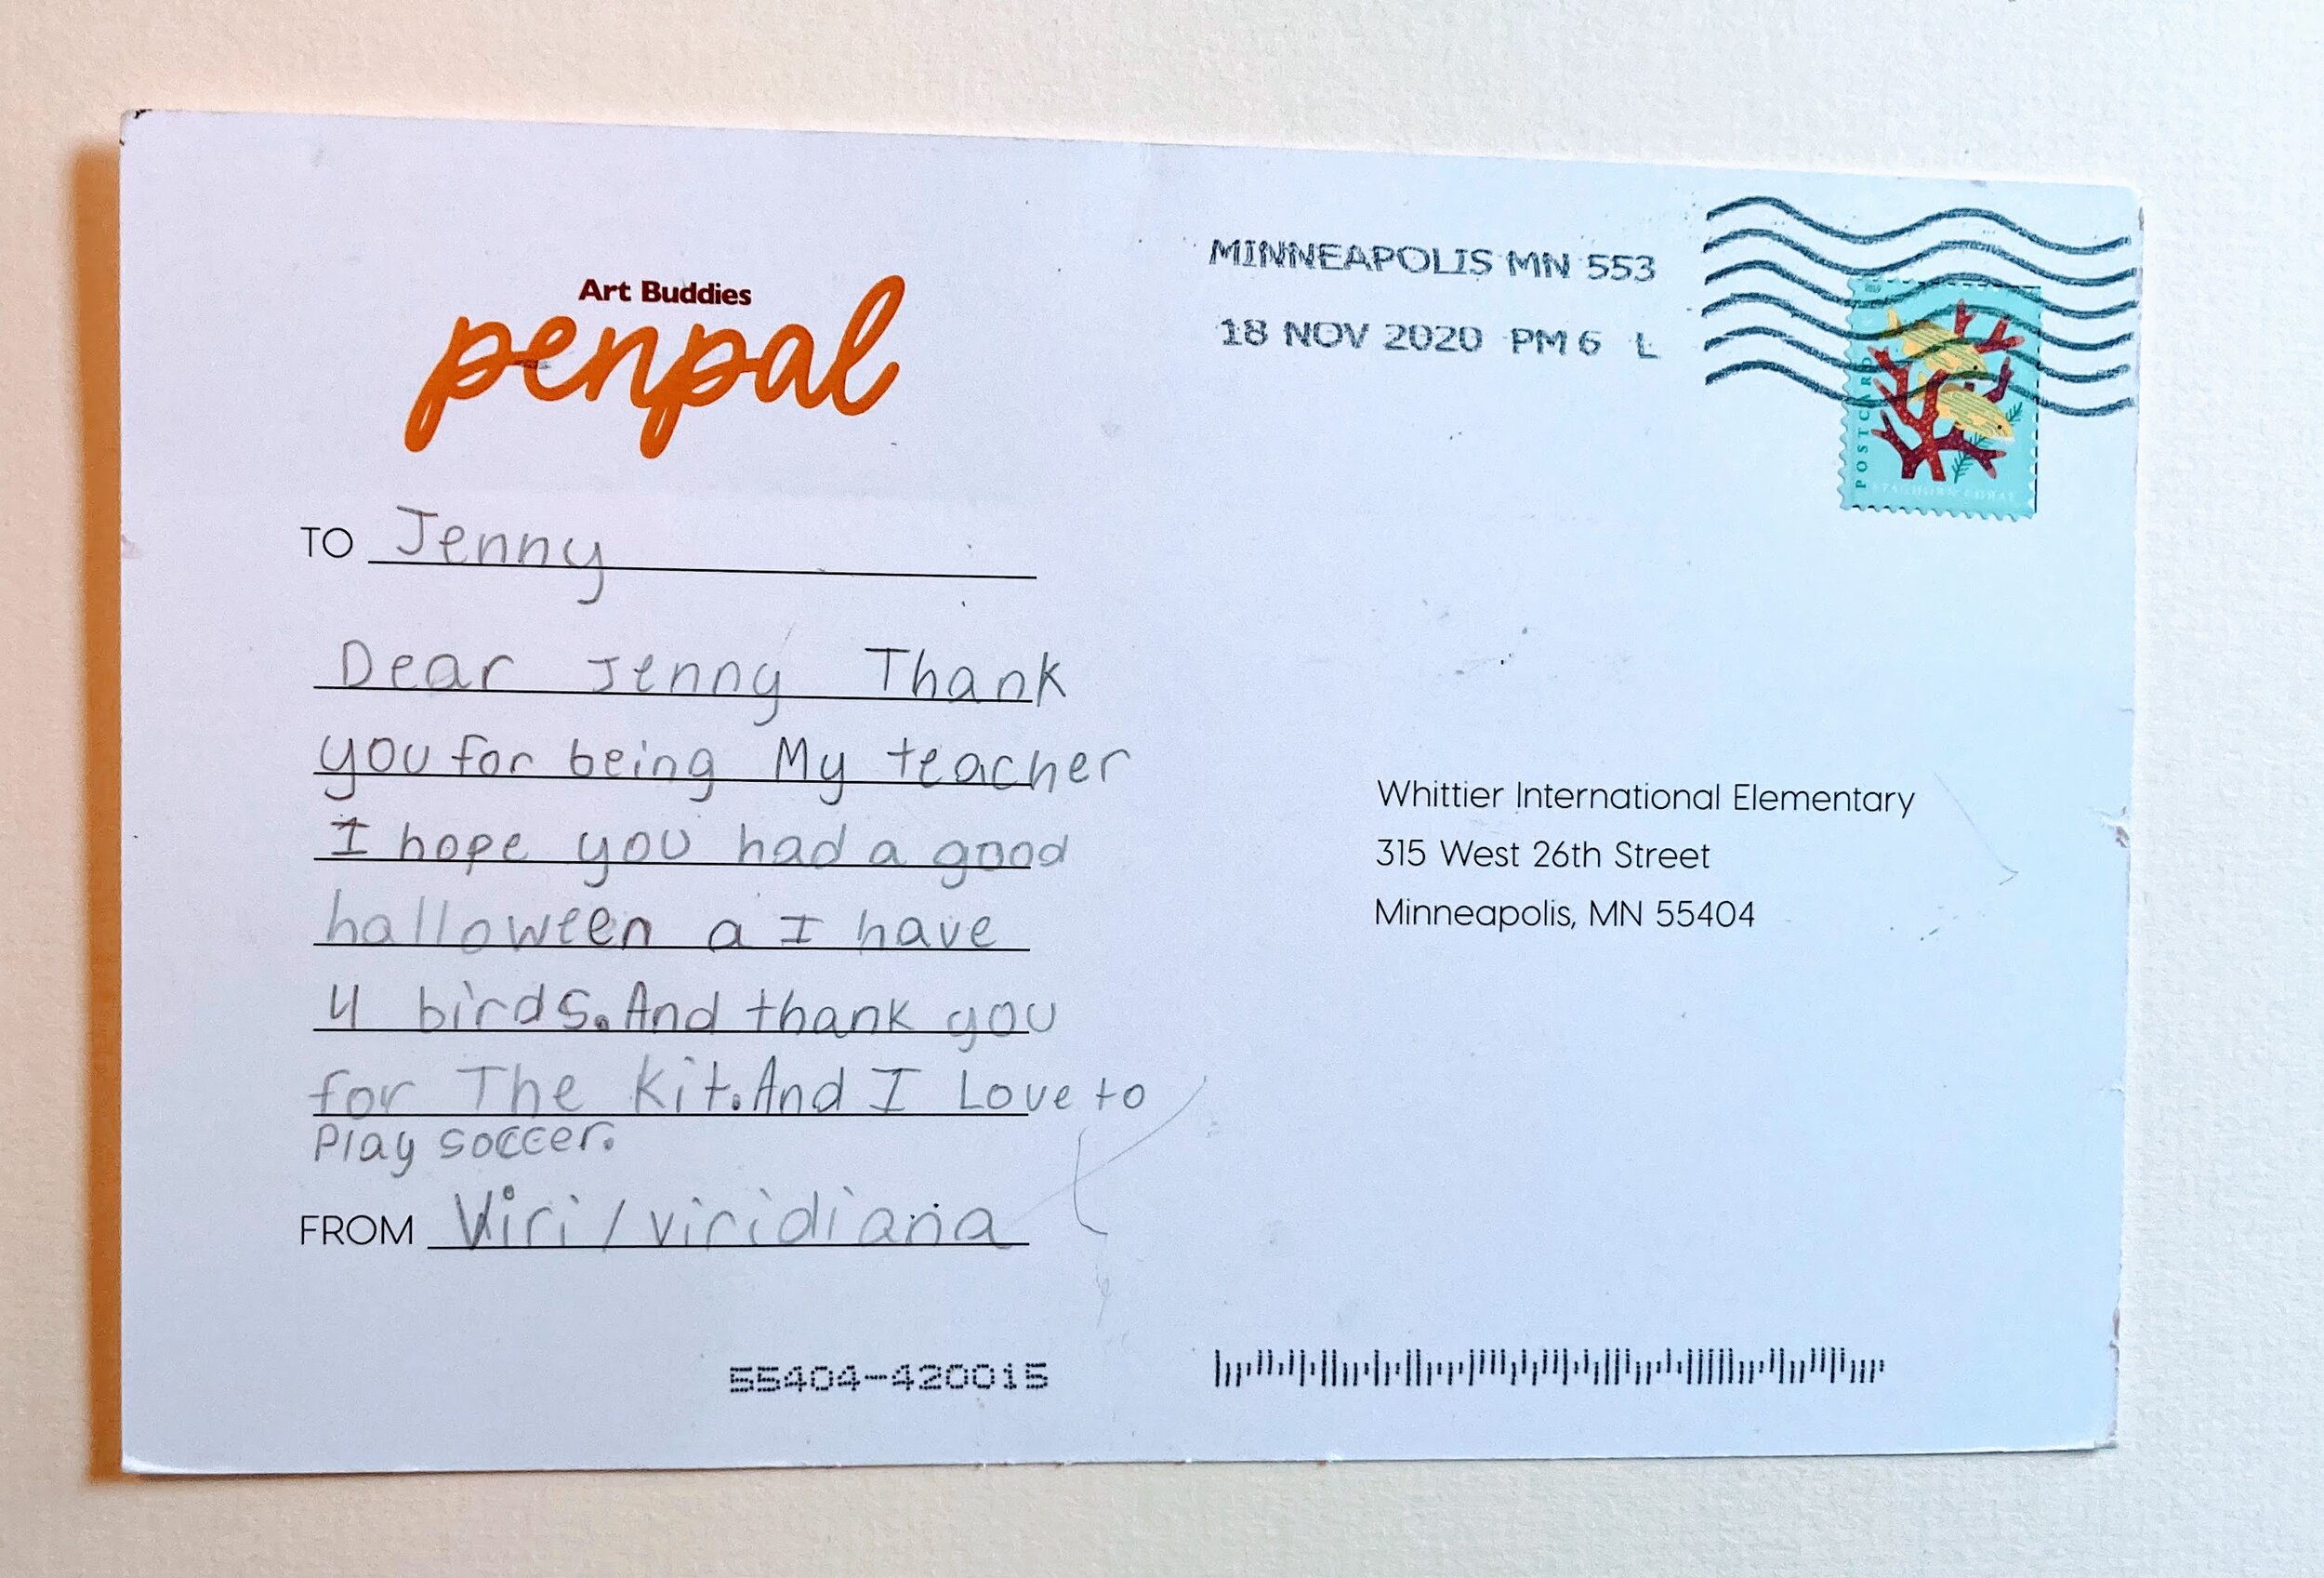 Art Buddies
penpal
MINNEAPOLIS MN 553
18 NOV 2020 PM 6 L
POSTCARD
STAGHORN CORAL
TO Jenny
Dear Jenny Thank
you for being My teacher
I hope you had a good
halloween a I have
4 birds. And thank you
for The Kit. And I Love to
Play soccer.
FROM Viri/viridiana
Whittier International Elementary
315 West 26th Street
Minneapolis, MN 55404
55404-420015